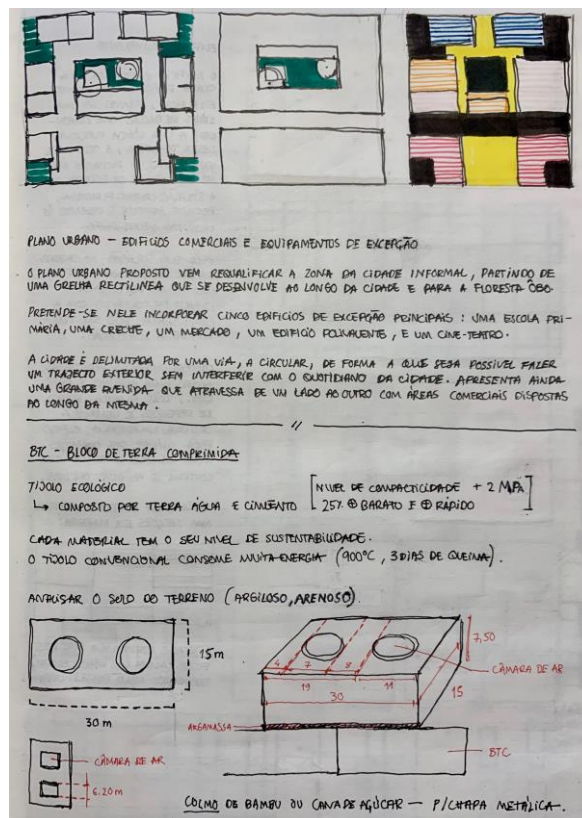 PLANO URBANO — EDIFÍCIOS COMERCIAIS E EQUIPAMENTOS DE EXCEPÇÃO
O PLANO URBANO PROPOSTO VEM REQUALIFICAR A ZONA DA CIDADE INFORMAL, PARTINDO DE
UMA GRELHA RECTILINEA QUE SE DESENVOLVE AO LONGO DA CIDADE E PARA A FLORESTA ÔBO.
PRETENDE-SE NELE INCORPORAR CINCO EDIFICIOS DE EXCEPÇÃO PRINCIPAIS : UMA ESCOLA PRI-
MÁRIA, UMA CRECHE, UM MERCADO, UM EDIFICIO POLIVALENTE, E UM CINE-TEATRO.
A CIDADE É DELIMITADA POR UMA VIA, A CIRCULAR, DE FORMA A QUE SEJA POSSIVEL FAZER
UM TRAJECTO EXTERIOR SEM INTERFERIR COM O QUOTIDIANO DA CIDADE. APRESENTA AINDA
UMA GRANDE AVENIDA QUE ATRAVESSA DE UM LADO AO OUTRO COM ÁREAS COMERCIAIS DISPOSTAS
AO LONGO DA MESMA.
//
BTC - BLOCO DE TERRA COMPRIMIDA
TIJOLO ECOLÓGICO
↳ COMPOSTO POR TERRA ÁGUA E CIMENTO
[NIVEL DE COMPACTICIDADE + 2 MPA
25% ⊕ BARATO E ⊕ RÁPIDO]
CADA MATERIAL TEM O SEU NIVEL DE SUSTENTABILIDADE.
O TIJOLO CONVENCIONAL CONSOME MUITA ENERGIA (900°C, 3 DIAS DE QUEIMA).
ANALISAR O SOLO DO TERRENO (ARGILOSO, ARENOSO).
15m
30 m
7,50
4 7 8
19 11
30
15
CÂMARA DE AR
ARGAMASSA
BTC
CÂMARA DE AR
6.20m
COLMO DE BAMBU OU CANA DE AÇÚCAR — P/CHAPA METÁLICA.